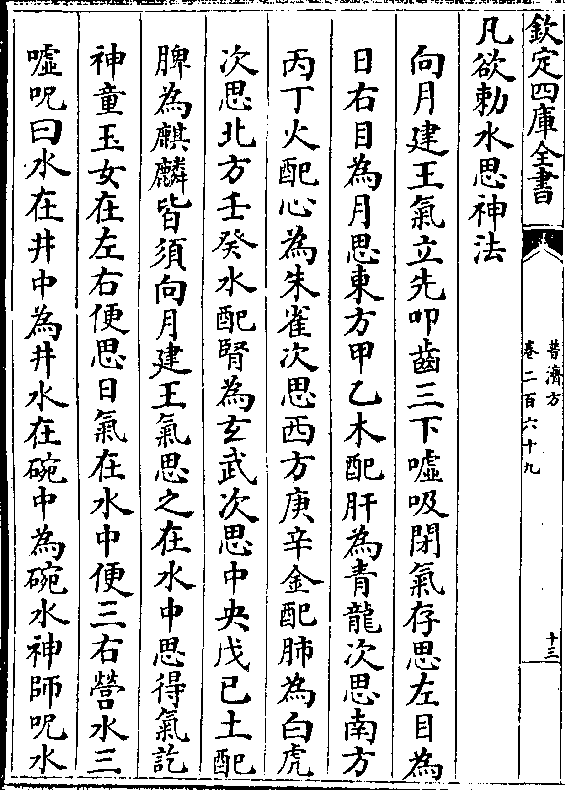 欽定四庫全書
普濟方
卷二百六十九
十三
凡欲勅水思神法
向月建王氣立先叩齒三下噓吸閉氣存思左目為
日右目為月思東方甲乙木配肝為青龍次思南方
丙丁火配心為朱雀次思西方庚辛金配肺為白虎
次思北方壬癸水配腎為玄武次思中央戊己土配
脾為麒麟皆須向月建王氣思之在水中思得氣訖
神童玉女在左右便思日氣在水中便三右營水三
噓呪曰水在井中為井水在碗中為碗水神師呪水